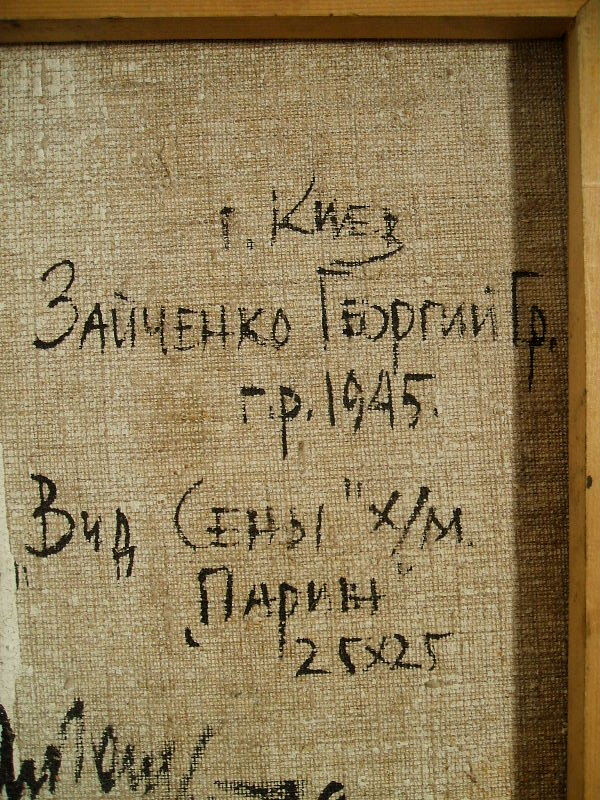 г. Киев
Зайченко Георгий Гр.
г.р. 1945.
"Вид Сены" х/м.
"Париж"
25х25